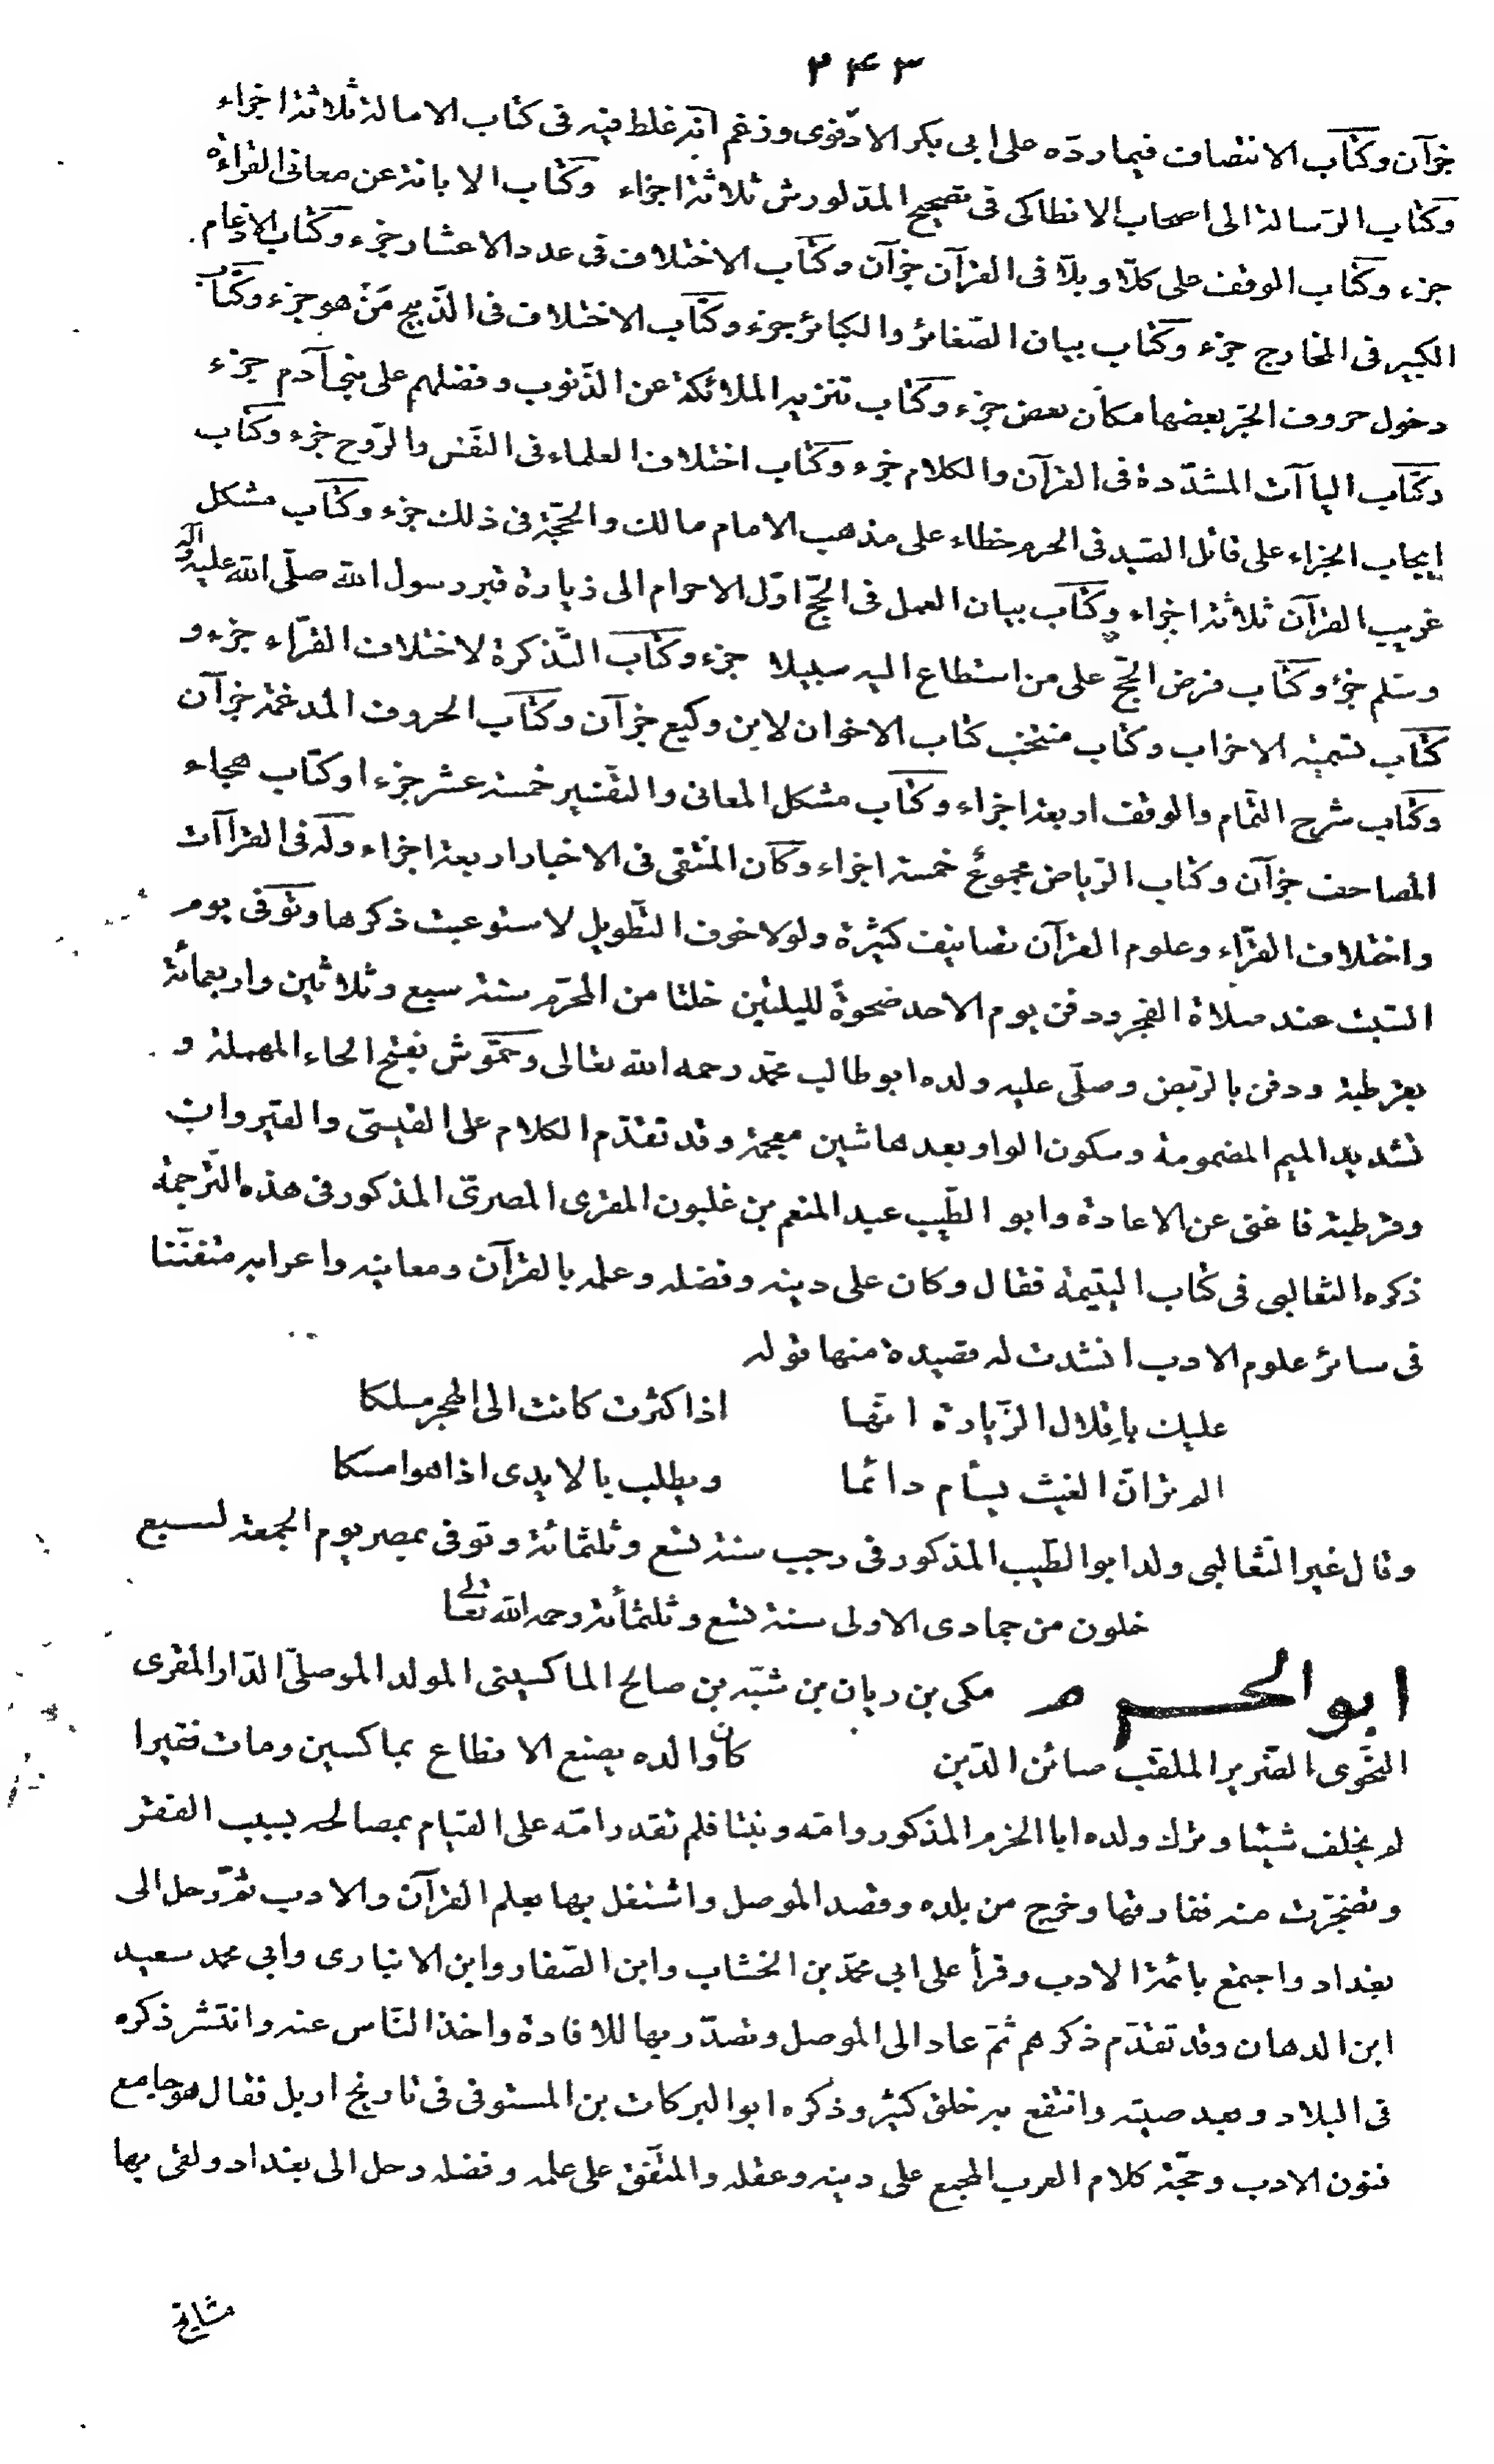 ۲۴۳
جزآن وكتاب الانتصاف فيما ردّه على ابى بكر الادفوى وزعم انّه غلط فيه فى كتاب الامالة ثلاثة اجزاء
وكتاب الرّسالة الى اصحاب الانطاكى فى تصحيح المدّ لورش ثلاثة اجزاء وكتاب الابانة عن معانى القراءة
جزء وكتاب الوقف على كلّا وبلا فى القرآن جزآن وكتاب الاختلاف فى عدد الاعشار جزء وكتاب الادغام
الكبير فى المخارج جزء وكتاب بيان الصّغائر والكبائر جزء وكتاب الاختلاف فى الذّبيح مَنْ هو جزء وكتاب
دخول حروف الجرّ بعضها مكان بعض جزء وكتاب تنزيه الملائكة عن الذّنوب وفضلهم على بنى آدم جزء
وكتاب الياآت المشدّدة فى القرآن والكلام جزء وكتاب اختلاف العلماء فى النّفس والرّوح جزء وكتاب
ايجاب الجزاء على قاتل الصّيد فى الحرم خطاء على مذهب الامام مالك والحجّة فى ذلك جزء وكتاب مشكل
غريب القرآن ثلاثة اجزاء وكتاب بيان العمل فى الحجّ اوّل الاحرام الى زيارة قبر رسول الله صلّى الله عليه وآله
وسلم جزء وكتاب فرض الحجّ على من استطاع اليه سبيلا جزء وكتاب التّذكرة لاختلاف القرّاء جزء و
كتاب تسمية الاحزاب وكتاب منتخب كتاب الاخوان لابن وكيع جزآن وكتاب الحروف المدغمة جزآن
وكتاب شرح التّمام والوقف اربعة اجزاء وكتاب مشكل المعانى والتّفسير خمسة عشر جزءا وكتاب هجاء
المصاحف جزآن وكتاب الرّياض مجموعٌ خمسة اجزاء وكان المنتقى فى الاخبار اربعة اجزاء وله فى القراآت
واختلاف القرّاء وعلوم القرآن تصانيف كثيرة ولولا خوف التّطويل لاستوعبت ذكرها وتوفى يوم
السّبت عند صلاة الفجر ودفن يوم الاحد ضحوةً لليلتين خلتا من المحرّم سنة سبع وثلاثين واربعمائة
بقرطبة ودفن بالرّبض وصلّى عليه ولده ابو طالب محمّد رحمه الله تعالى وحَمّوش بفتح الحاء المهملة و
تشديد الميم المضمومة وسكون الواو وبعدها شين معجمة وقد تقدّم الكلام على القيسىّ والقيروان
وقرطبة فاغنى عن الاعادة وابو الطّيب عبد المنعم بن غلبون المقرى المصرىّ المذكور فى هذه التّرجمة
ذكره الثعالبى فى كتاب اليتيمة فقال وكان على دينه وفضله وعلمه بالقرآن ومعانيه واعرابه متفنّنا
فى سائر علوم الادب انشدت له قصيدة منها قوله
عليك باِقلال الزّيارة انّها اذا كثرت كانت الى الهجر مسلكا
الم تر انّ الغيث يسأم دائما ويطلب بالايدى اذا هو امسكا
وقال غير الثّعالبى ولد ابو الطّيب المذكور فى رجب سنة تسع وثلثمائة وتوفى بمصر يوم الجمعة لسبع
خلون من جمادى الاولى سنة تسع وثلثمأئة رحمه الله تعالى
ابو الحــــرم مكى بن ريان بن شبّه بن صالح الماكسينى المولد الموصلىّ الدّار المقرى
النّحوى الضّرير الملقب صائن الدّين كان والده يصنع الانطاع بماكسين ومات فقيرا
لم يخلف شيئا وترك ولده ابا الحزم المذكور وامّه وبنتا فلم تقدر امّه على القيام بمصالحه بسبب الفقر
وتضجّرت منه ففارقها وخرج من بلده وقصد الموصل واشتغل بها بعلم القرآن والادب ثمّ رحل الى
بغداد واجتمع بائمّة الادب وقرأ على ابى محمّد بن الخشاب وابن الصّفار وابن الانبارى وابى محمد سعيد
ابن الدهان وقد تقدّم ذكرهم ثمّ عاد الى الموصل وتصدّر بها للافادة واخذ النّاس عنه وانتشر ذكره
فى البلاد وبعد صيته وانتفع به خلق كثير وذكره ابو البركات بن المستوفى فى تاريخ اربل فقال هو جامع
فنون الادب وحجّة كلام العرب المجمع على دينه وعقله والمتّفق على علمه وفضله رحل الى بغداد ولقى بها
مشايخ